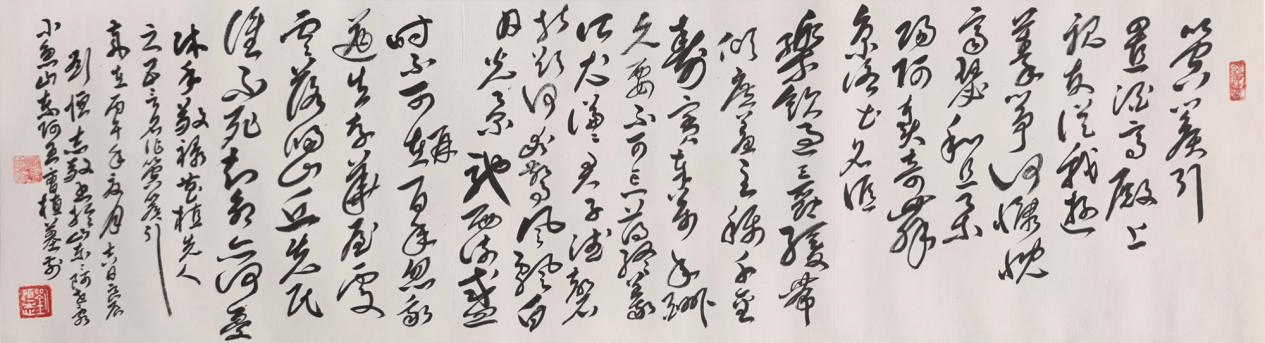 箜篌引
置酒高殿上
親友從我遊
秦箏何慷慨
齊瑟和且柔
陽阿奏奇舞
京洛出名謳
樂飲過三爵緩帶
傾庶羞主稱千金
壽賓奉萬年酬
久要不可忘薄終義
所尤謙謙君子德磬
折欲何求驚風飄白
日光景馳西流盛
时不可再百年忽我
遒生存華屋處
零落歸山丘先民
誰不死知命亦何憂
沐手敬録曹植先人
之千古名作箜篌引
丙午年月日
劉恒志敬書於
魚山東阿王曹植墓前